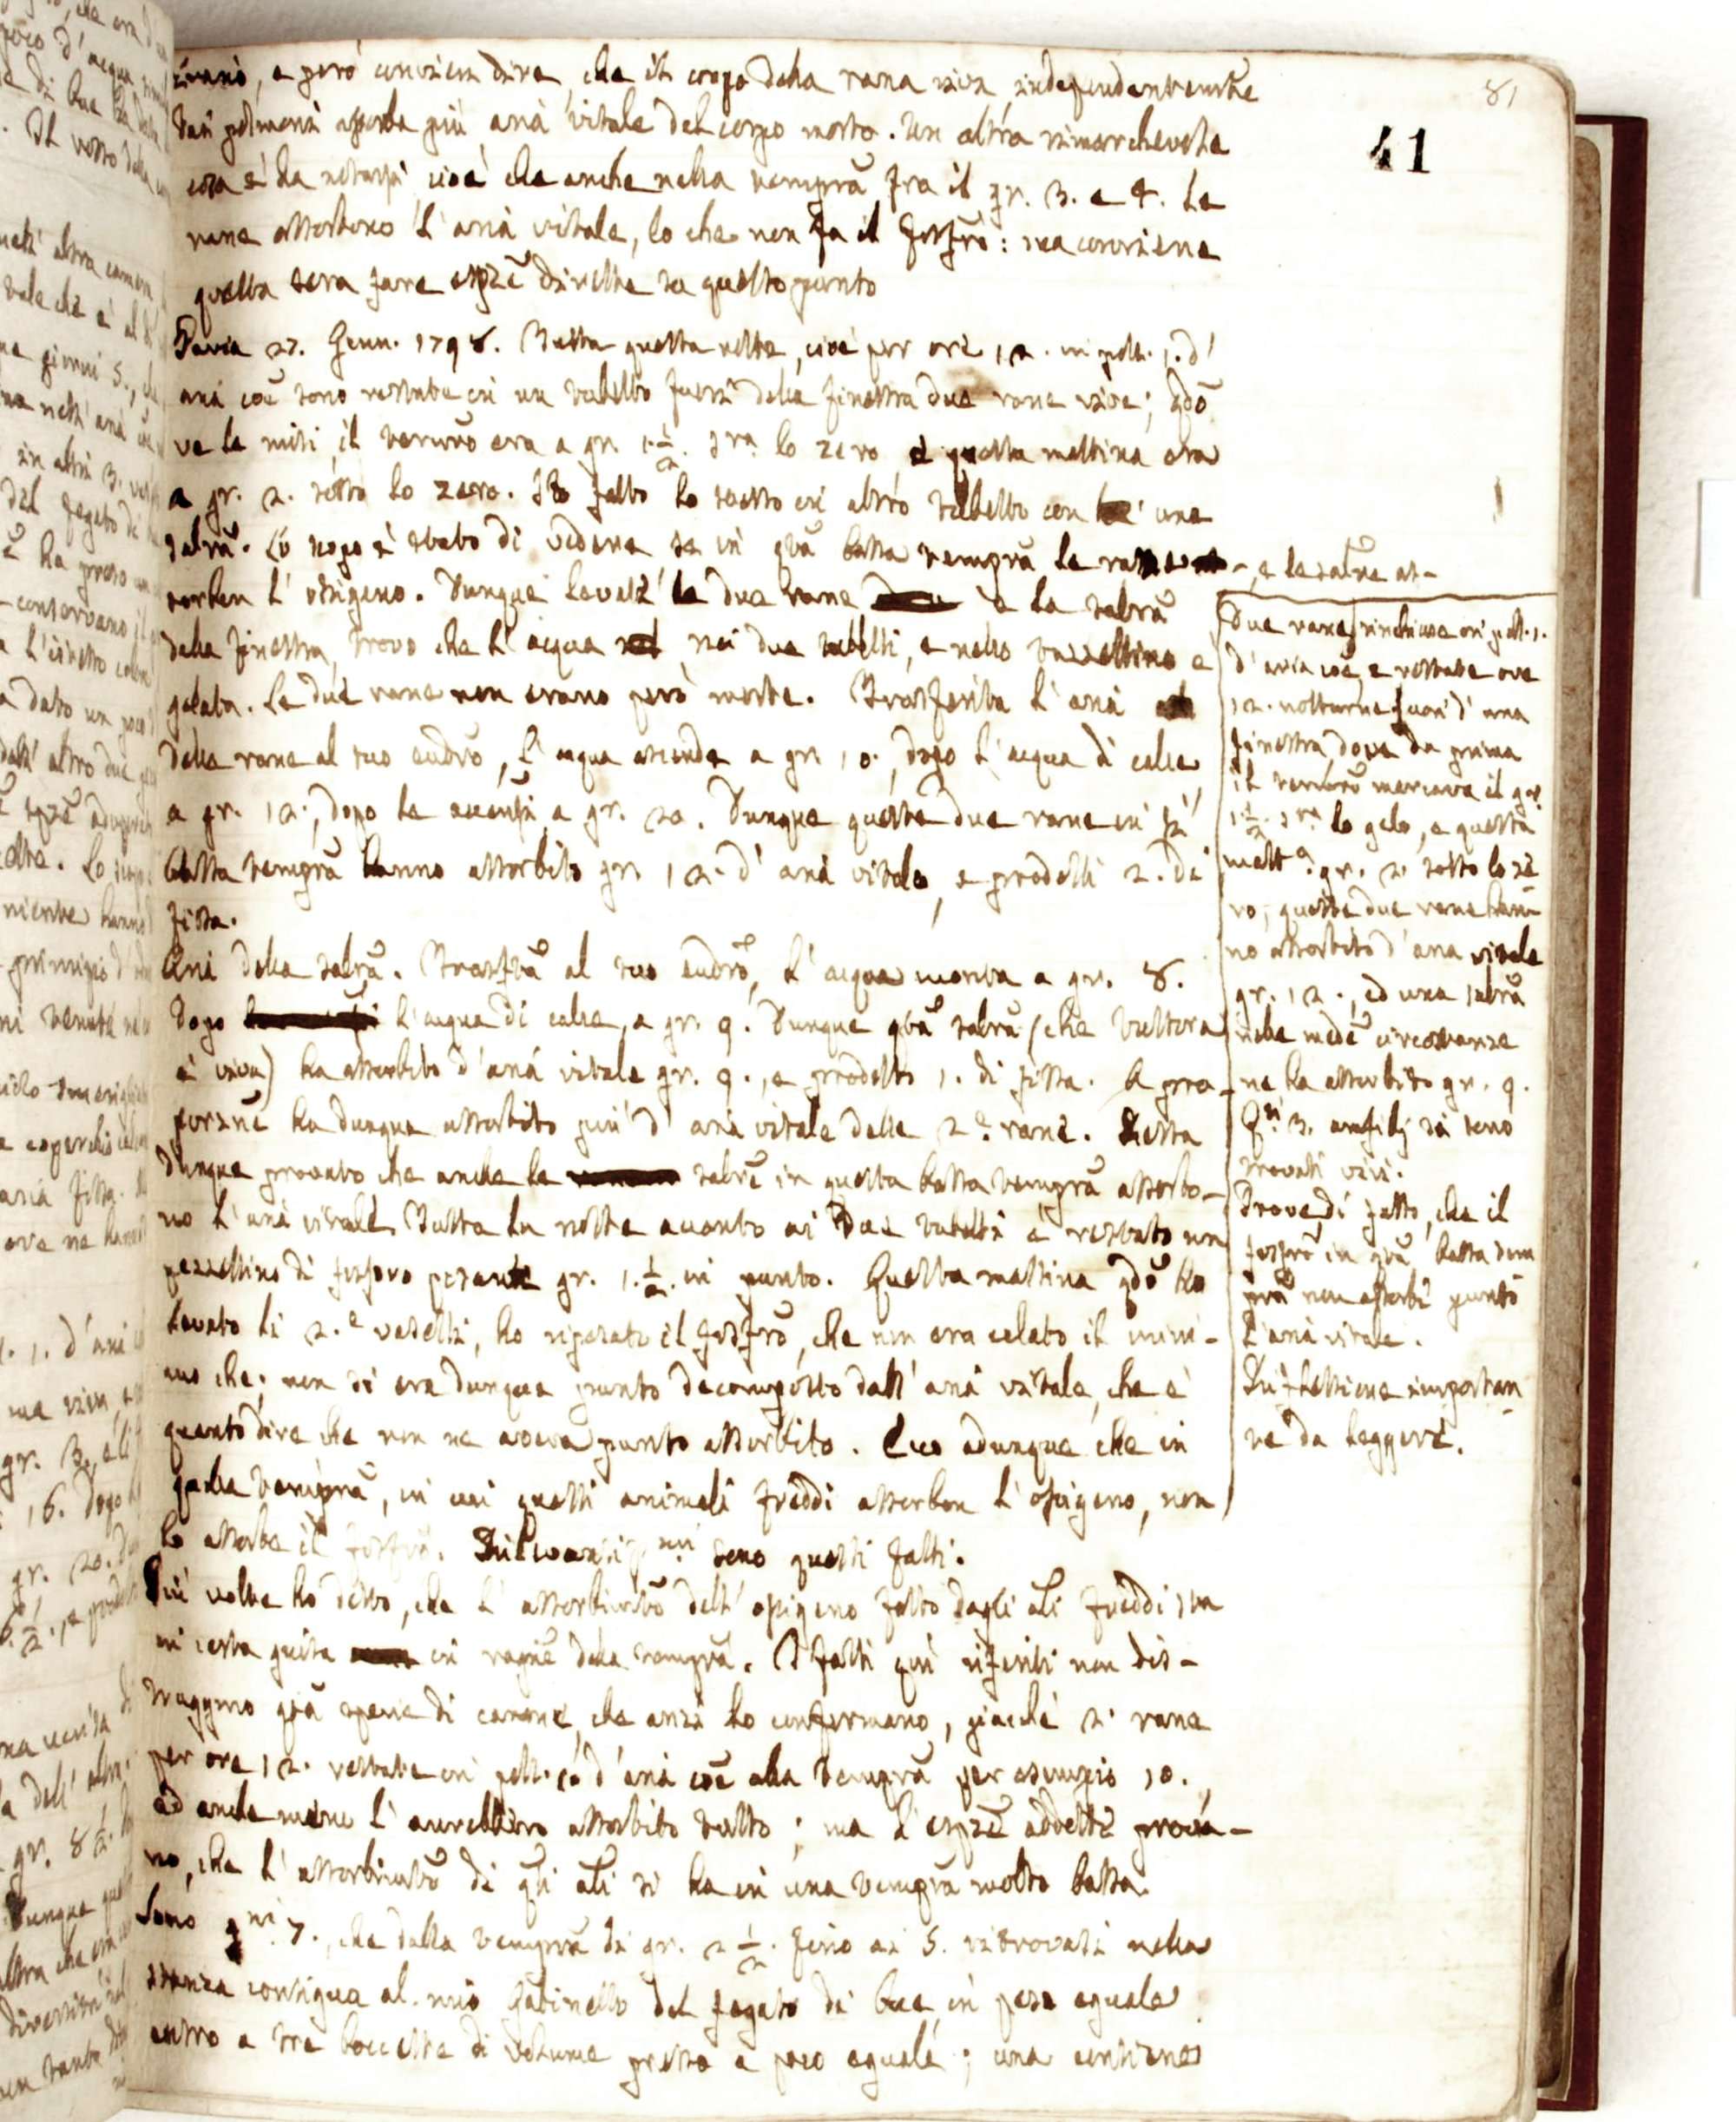 81
41
, e però convien dire, che il corpo della rana viva, independentemte
dai polmoni assorba più aria vitale del corpo morto. Un altra rimarchevole
cosa è da notarsi, cioè che anche nella temprã fra il gr. 3. e 4. le
rane assorbono l'aria vitale, lo che non fa il fosfrõ: ma conviene
questa sera fare espzẽ dirette su questo punto
Pavia 27. Genn. 1798. Tutta questa notte, cioè per ore 12. in poll. 1. d'
aria coẽ sono restate in un tubetto fuori della finestra due rane vive; qdõ
ve le misi, il termrõ era a gr. 1.½. sra. lo zero e questa mattina era
a gr. 2. sotto lo zero. Ho fatto lo stesso in altro tubetto con una
salrã. Lo scopo è stato di vedere se in qtã bassa temprã le rane, e le salrẽ as-
sorben l'ossigeno. Dunque levate le due rane e la salrã
dalla finestra, trovo che l'acqua nei due tubetti, e nello vasettino è
gelata. Le due rane non erano però morte. Trasferita l'aria
delle rane al suo eudrõ, l'acqua ascende a gr. 10., dopo l'acqua di calce,
a gr. 12., dopo la accensi, a gr. 20. Dunque queste due rane in sì
bassa temprã hanno assorbito gr. 12. d'aria vitale, e prodotti 2. di
fissa.
Aria della salrã. Trasfrã al suo eudrõ, l'acqua monta a gr. 8.
Dopo l'acqua di calce, a gr. 9. Dunque qtã salrã (che tuttora
è viva) ha assorbito d'aria vitale gr. 9., e prodotto 1. di fissa. A pro-
porznẽ ha dunque assorbito più d'aria vitale delle 2.e rane. Resta
dunque provato che anche le salrẽ in questa bassa temprã assorbo-
no l'aria vitale. Tutta la notte accanto ai due tubetti è restato un
pezzettino di fosforo pesante gr. 1.½. in punto. Questa mattina qdõ ho
levato li 2.e vasetti, ho ripesato il fosfrõ, che non era calato il mini-
mo che; non si era dunque punto decomposto dall'aria vitale, che è
quanto dire che non ne aveva punto assorbito. Ecco adunque che in
quella temprã, in cui questi animali freddi assorbon l'ossigeno, non
lo assorbe il fosfrõ. sono questi fatti.
Più volte ho detto, che l'assorbimtõ dell'ossigeno fatto dagli ali freddi sta
in certa guisa in ragnẽ della temprã. I fatti qui riferiti non dis-
truggono qtã spezie di canone, che anzi lo confermano, giacchè 2. rane
per ore 12. restate in poll. 1. d'aria coẽ alla temprã per esempio 10.
ed anche meno l'avrebbero assorbito tutto; ma l'espzẽ addotte prova-
no, che l'assorbimtõ di qti ali si ha in una temprã molto bassa.
Sono gni. 7., che dalla temprã di gr. 2½. fino ai 5. ritrovasi nella
stanza contigua al mio Gabinetto del fegato di bue in peso eguale
entro a tre boccette di volume presso a poco eguale; una contiene
Due rane rinchiuse in poll. 1.
d'aria coẽ, e restate ore
12. notturne fuori d'una
finestra, dove da prima
il termrõ marcava il gr.
1.½. sra. lo gelo, e questa
matta. gr. 2. sotto lo ze
ro, queste due rane han-
no assorbito d'aria vitale
gr. 12., ed una salrã
nelle medẽ circostanze
ne ha assorbito gr. 9.
Qti. 3. amfibj si sono
trovati vivi.
Prove di fatto, che il
fosfrõ in qtã bassa tem
prã non assorbì punto
l'aria vitale.
Riflessione importan
te da leggersi.